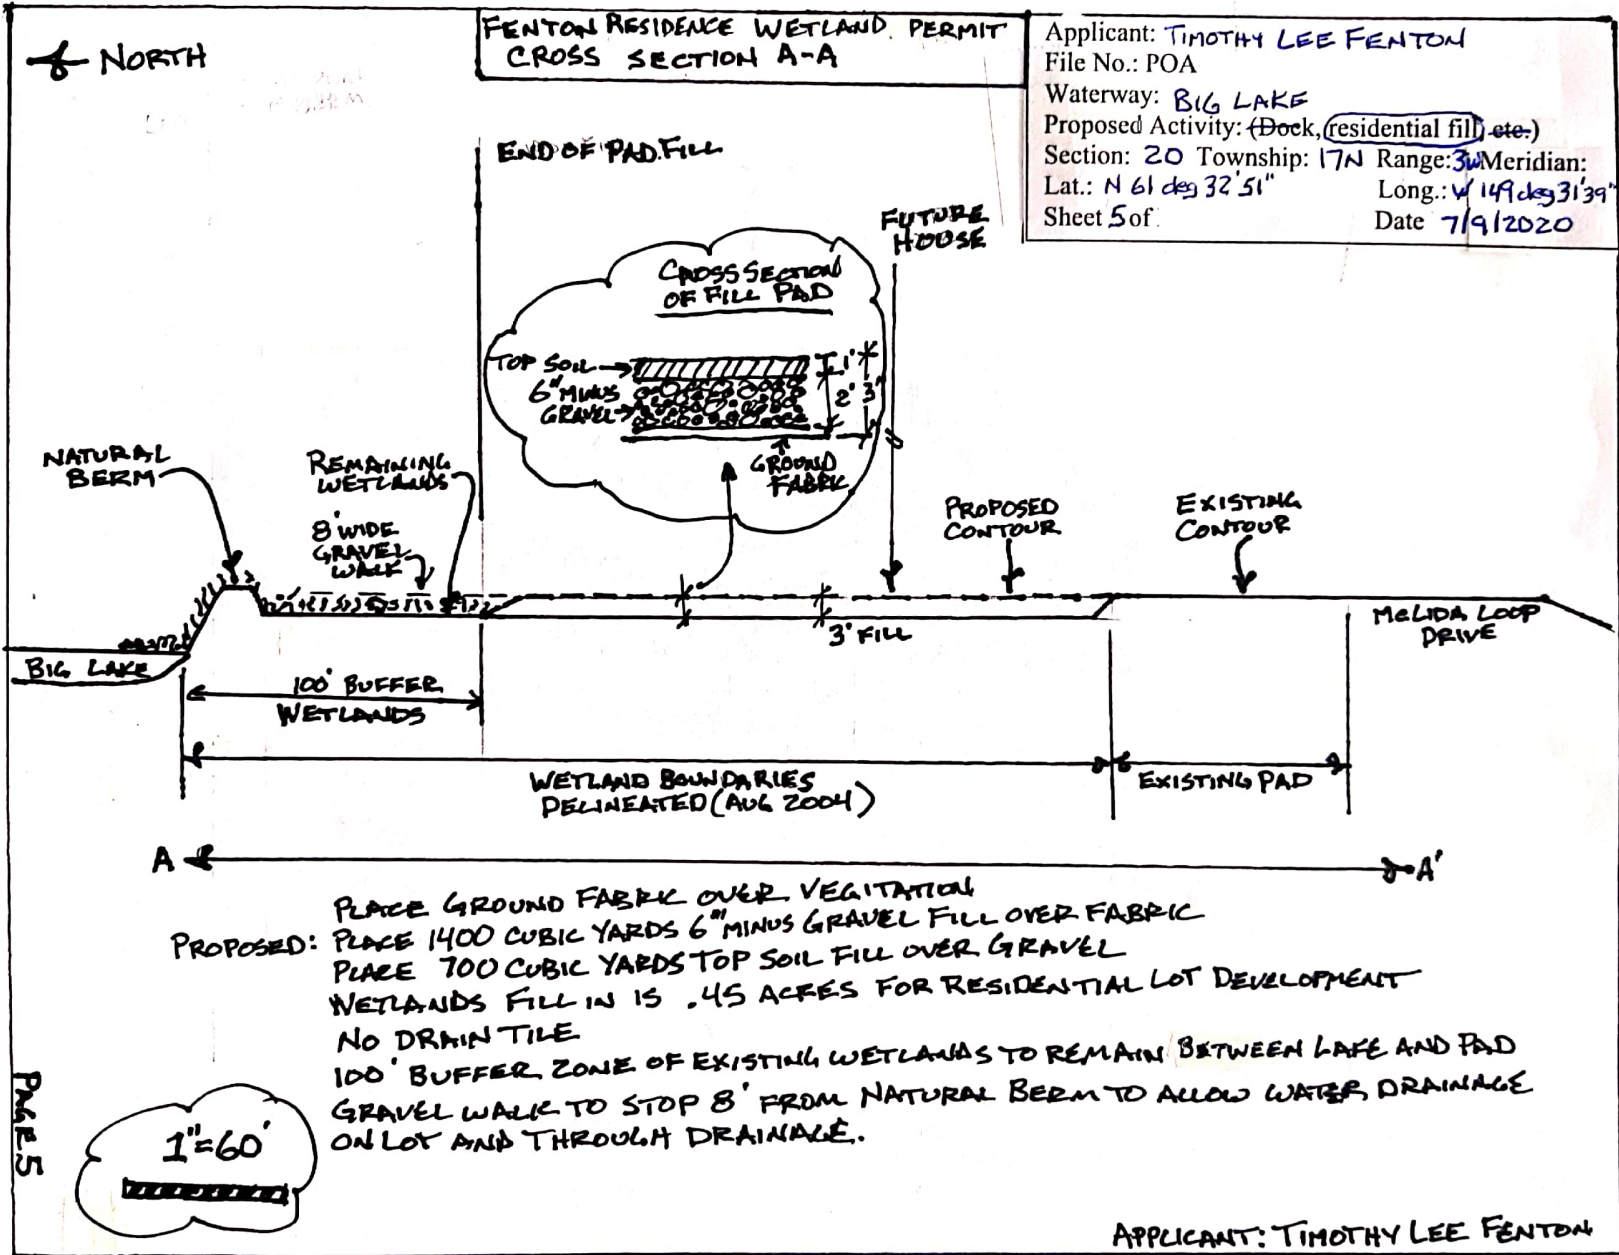 NORTH
FENTON RESIDENCE WETLAND PERMIT
CROSS SECTION A-A
Applicant: TIMOTHY LEE FENTON
File No.: POA
Waterway: BIG LAKE
Proposed Activity: (Dock, residential fill, etc.)
Section: 20 Township: 17N Range: 3W Meridian:
Lat.: N 61 deg 32' 51" Long.: W 149 deg 31' 39"
Sheet 5 of Date 7/9/2020
END OF PAD FILL
FUTURE
HOUSE
CROSS SECTION
OF FILL PAD
TOP SOIL
6" MINUS
GRAVEL
1'
2'
3'
GROUND
FABRIC
NATURAL
BERM
REMAINING
WETLANDS
8' WIDE
GRAVEL
WALK
PROPOSED
CONTOUR
EXISTING
CONTOUR
3' FILL
MELIDA LOOP
DRIVE
BIG LAKE
100' BUFFER
WETLANDS
WETLAND BOUNDARIES
DELINEATED (AUG 2004)
EXISTING PAD
A A'
PLACE GROUND FABRIC OVER VEGITATION
PROPOSED: PLACE 1400 CUBIC YARDS 6" MINUS GRAVEL FILL OVER FABRIC
PLACE 700 CUBIC YARDS TOP SOIL FILL OVER GRAVEL
WETLANDS FILL IN IS .45 ACRES FOR RESIDENTIAL LOT DEVELOPMENT
NO DRAIN TILE
100' BUFFER ZONE OF EXISTING WETLANDS TO REMAIN BETWEEN LAKE AND PAD
GRAVEL WALK TO STOP 8' FROM NATURAL BERM TO ALLOW WATER DRAINAGE
ON LOT AND THROUGH DRAINAGE.
PAGE 5
1"=60'
APPLICANT: TIMOTHY LEE FENTON